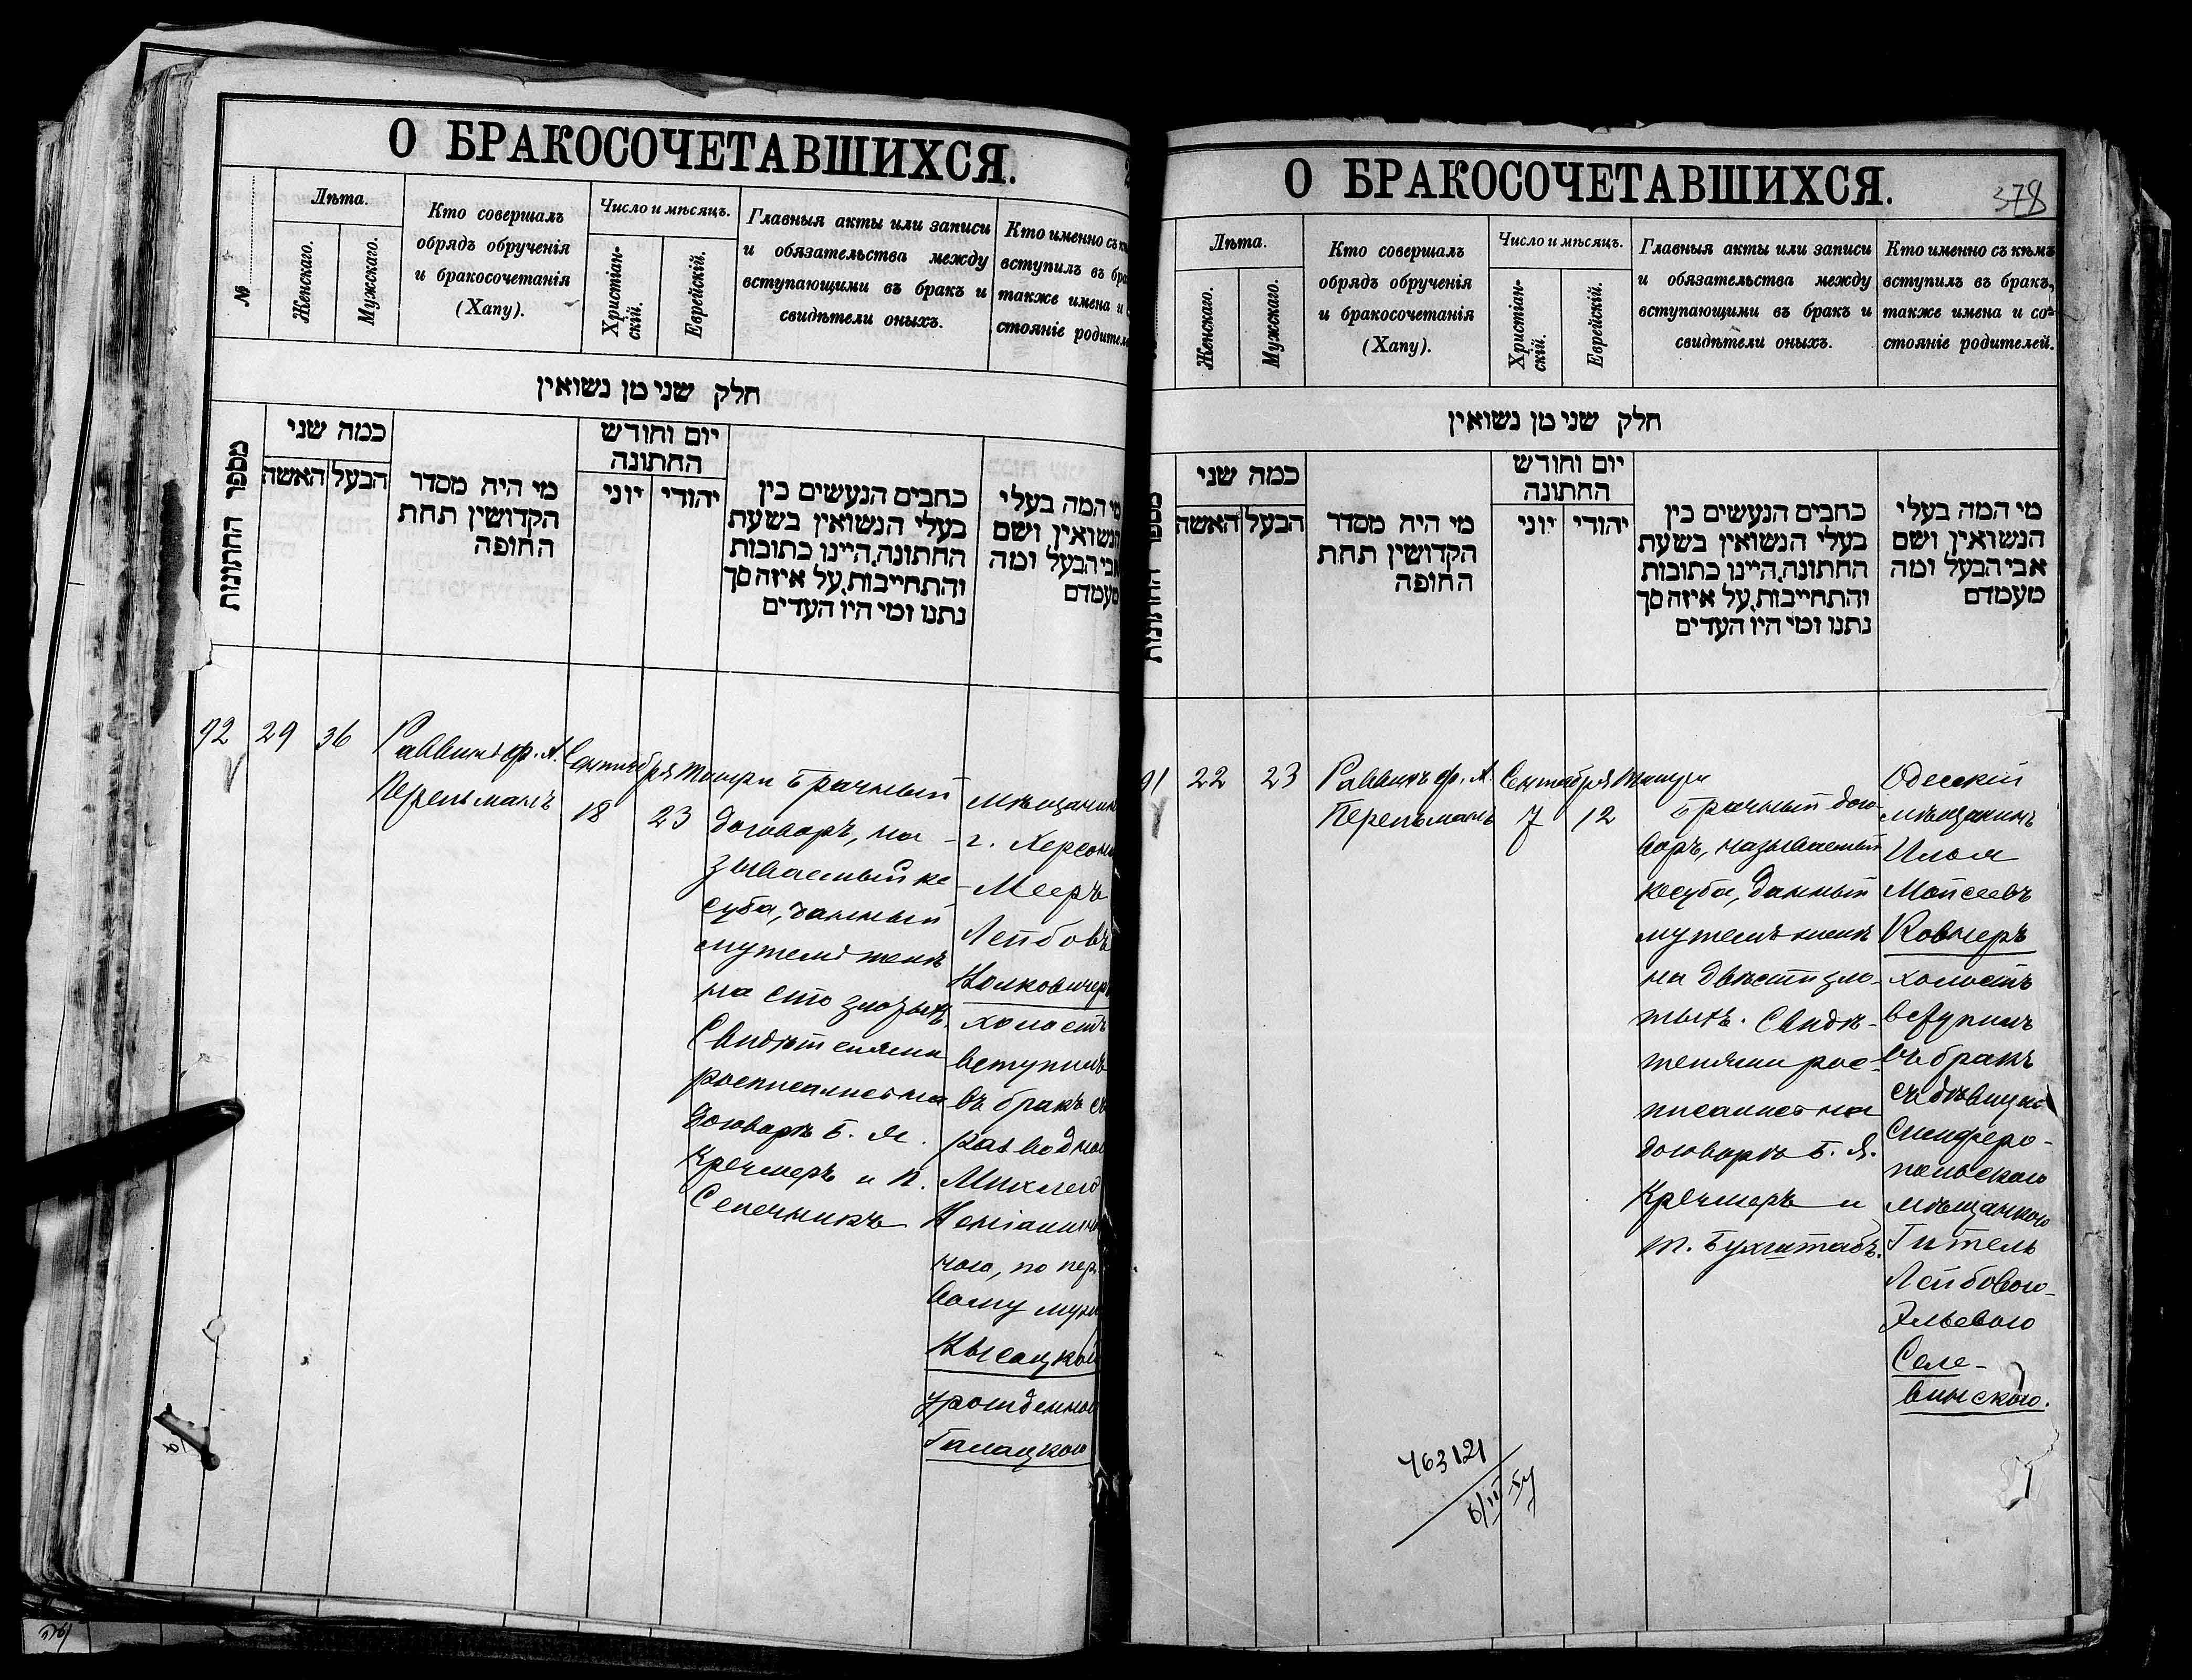 О БРАКОСОЧЕТАВШИХСЯ.
№
Лѣта.
Женскаго.
Мужскаго.
Кто совершалъ
обрядъ обрученія
и бракосочетанія
(Хапу).
Число и мѣсяцъ.
Христіан-
скій.
Еврейскій.
Главныя акты или записи
и обязательства между
вступающими въ бракъ и
свидѣтели оныхъ.
Кто именно съ
вступилъ въ
также имена и
стояніе
חלק שני מן נשואין
מספר החתונות
כמה שני
האשה
הבעל
מי היה מסדר
הקדושין תחת
החופה
יום וחודש
החתונה
יוני
יהודי
כתבים הנעשים בין
בעלי הנשואין בשעת
החתונה,היינו כתובות
והתחייבות,על איזה סך
נתנו ומי היו העדים
מי המה בעלי
הנשואין ושם
אבי הבעל ומה
מעמדם
92
29
36
Раввинъ ф. А.
Перельманъ
Сентября
18
Тишри
23
Брачный
договоръ, на-
зываемый ке-
суба, данный
мужемъ женѣ
на сто злотыхъ.
Свидѣтелями
росписались на
договорѣ Б. Я.
Кремеръ и
мѣщанинъ
г. Херсона
Мееръ
Лейбовъ
холостъ
вступилъ
въ бракъ съ
разводной
по пер
вому
урожденной
Галацкою
О БРАКОСОЧЕТАВШИХСЯ.
378
Лѣта.
Женскаго.
Мужскаго.
Кто совершалъ
обрядъ обрученія
и бракосочетанія
(Хапу).
Число и мѣсяцъ.
Христіан-
скій.
Еврейскій.
Главныя акты или записи
и обязательства между
вступающими въ бракъ и
свидѣтели оныхъ.
Кто именно съ кѣмъ
вступилъ въ бракъ,
также имена и со-
стояніе родителей.
חלק שני מן נשואין
מספר החתונות
כמה שני
האשה
הבעל
מי היה מסדר
הקדושין תחת
החופה
יום וחודש
החתונה
יוני
יהודי
כתבים הנעשים בין
בעלי הנשואין בשעת
החתונה,היינו כתובות
והתחייבות,על איזה סך
נתנו ומי היו העדים
מי המה בעלי
הנשואין ושם
אבי הבעל ומה
מעמדם
91
22
23
Раввинъ ф. А.
Перельманъ
Сентября
7
Тишри
12
Брачный дого-
воръ, называемый
кесуба, данный
мужемъ женѣ
на двѣсти зло-
тыхъ. Свидѣ-
телями рос-
писались на
договорѣ Б. Я.
Кремеръ и
Одесскій
мѣщанинъ
Илья
Мойсеевъ
Ковнеръ
холостъ
вступилъ
въ бракъ
съ дѣвицею
Симферо-
польскою
мѣщанкою
Гитель
Лейбовою-
Эльевою
Селе-
винскою.
463121